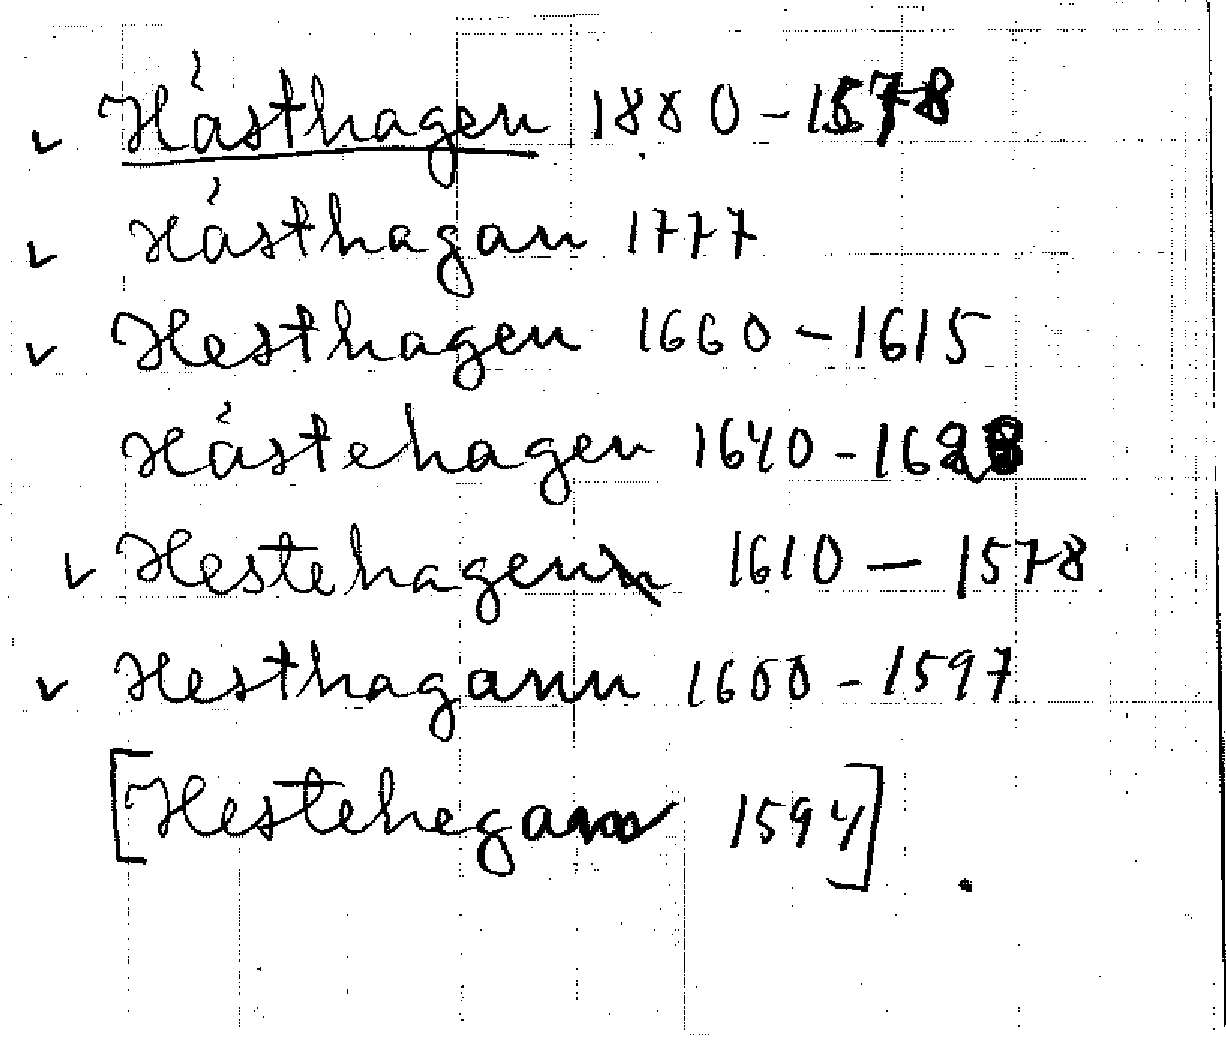 ✓ Hästhagen 1880-1578
✓ Hästhagan 1777
✓ Hesthagen 1660-1615
Hästehagen 1640-1628
✓ Hestehagen 1610-1578
✓ Hesthagann 1600-1597
[Hestehegan 1594]